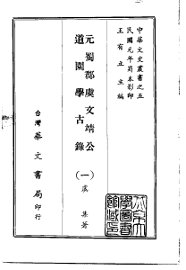 中華文史叢書之五
民國元年蜀本影印
王有立主編
元蜀郡虞文靖公
道園學古錄
(一)
虞集著
台灣華文書局印行